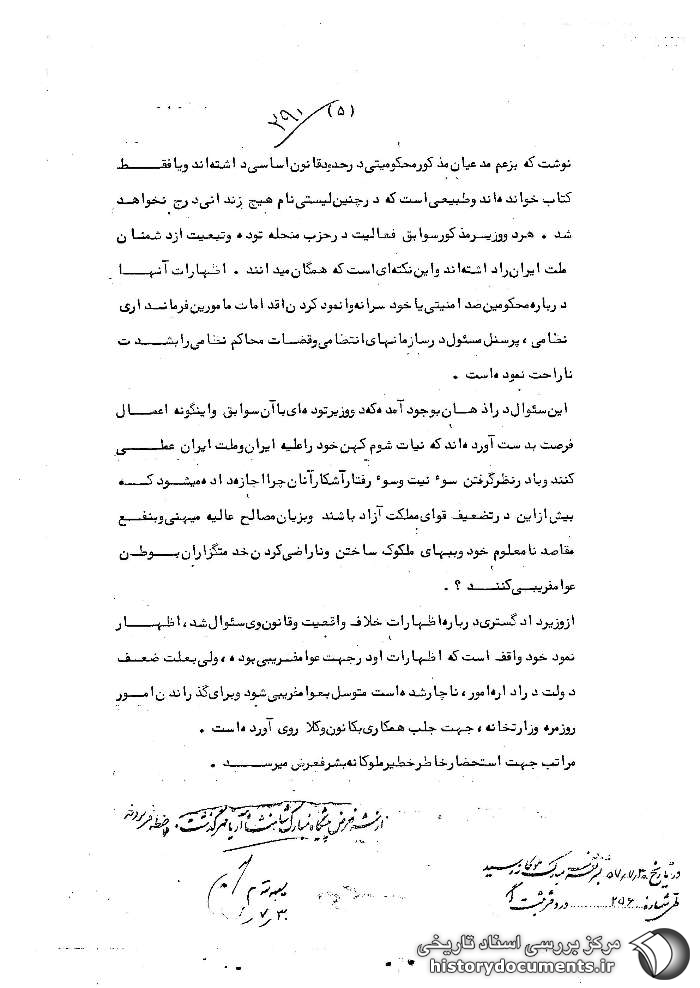 (۵) ۲۹۱
نوشت که بزعم مدعیان مذکور محکومیتی در حدود قانون اساسی داشته‌اند ویا فقط
کتاب خوانده‌اند وطبیعی است که در چنین لیستی نام هیچ زندانی درج نخواهد
شد . هر دو وزیر مذکور سوابق فعالیت در حزب منحله توده و تبعیت از دشمنان
ملت ایران را داشته‌اند و این نکته‌ای است که همگان میدانند . اظهارات آنها
درباره محکومین ضد امنیتی یا خود سرانه وانمود کردن اقدامات مامورین فرمانداری
نظامی ، پرسنل مسئول در سازمانهای انتظامی و قضات محاکم نظامی را بشدت
ناراحت نموده است .
این سئوال در اذهان بوجود آمده که دو وزیر توده‌ای با آن سوابق و اینگونه اعمال
فرصت بدست آورده‌اند که نیات شوم کهن خود را علیه ایران و ملت ایران عملی
کنند و با در نظر گرفتن سوء نیت و سوء رفتار آشکار آنان چرا اجازه داده میشود که
بیش از این در تضعیف قوای مملکت آزاد باشند و بزیان مصالح عالیه میهنی و بنفع
مقاصد نامعلوم خود و ببهای ملکوک ساختن و ناراضی کردن خدمتگزاران بوطن
عوامفریبی کنند ؟ .
از وزیر دادگستری درباره اظهارات خلاف واقعیت و قانون وی سئوال شد ، اظهار
نمود خود واقف است که اظهارات او در جهت عوامفریبی بوده ، ولی بعلت ضعف
دولت در اداره امور ، ناچار شده است متوسل بعوامفریبی شود و برای گذراندن امور
روزمره وزارتخانه ، جهت جلب همکاری بکانون وکلا روی آورده است .
مراتب جهت استحضار خاطر خطیر ملوکانه بشرفعرض میرسد .
از شرف عرض پیشگاه مبارک شاهنشاه آریامهر گذشت . ملاحظه فرمودند
سپهبد مقدم
۷/۳۰
در تاریخ ۵۷/۷/۳۰ بشرف عرض مبارک ملوکانه رسید
طی شماره ۲۹۶ در دفتر ثبت
مرکز بررسی اسناد تاریخی
historydocuments.ir